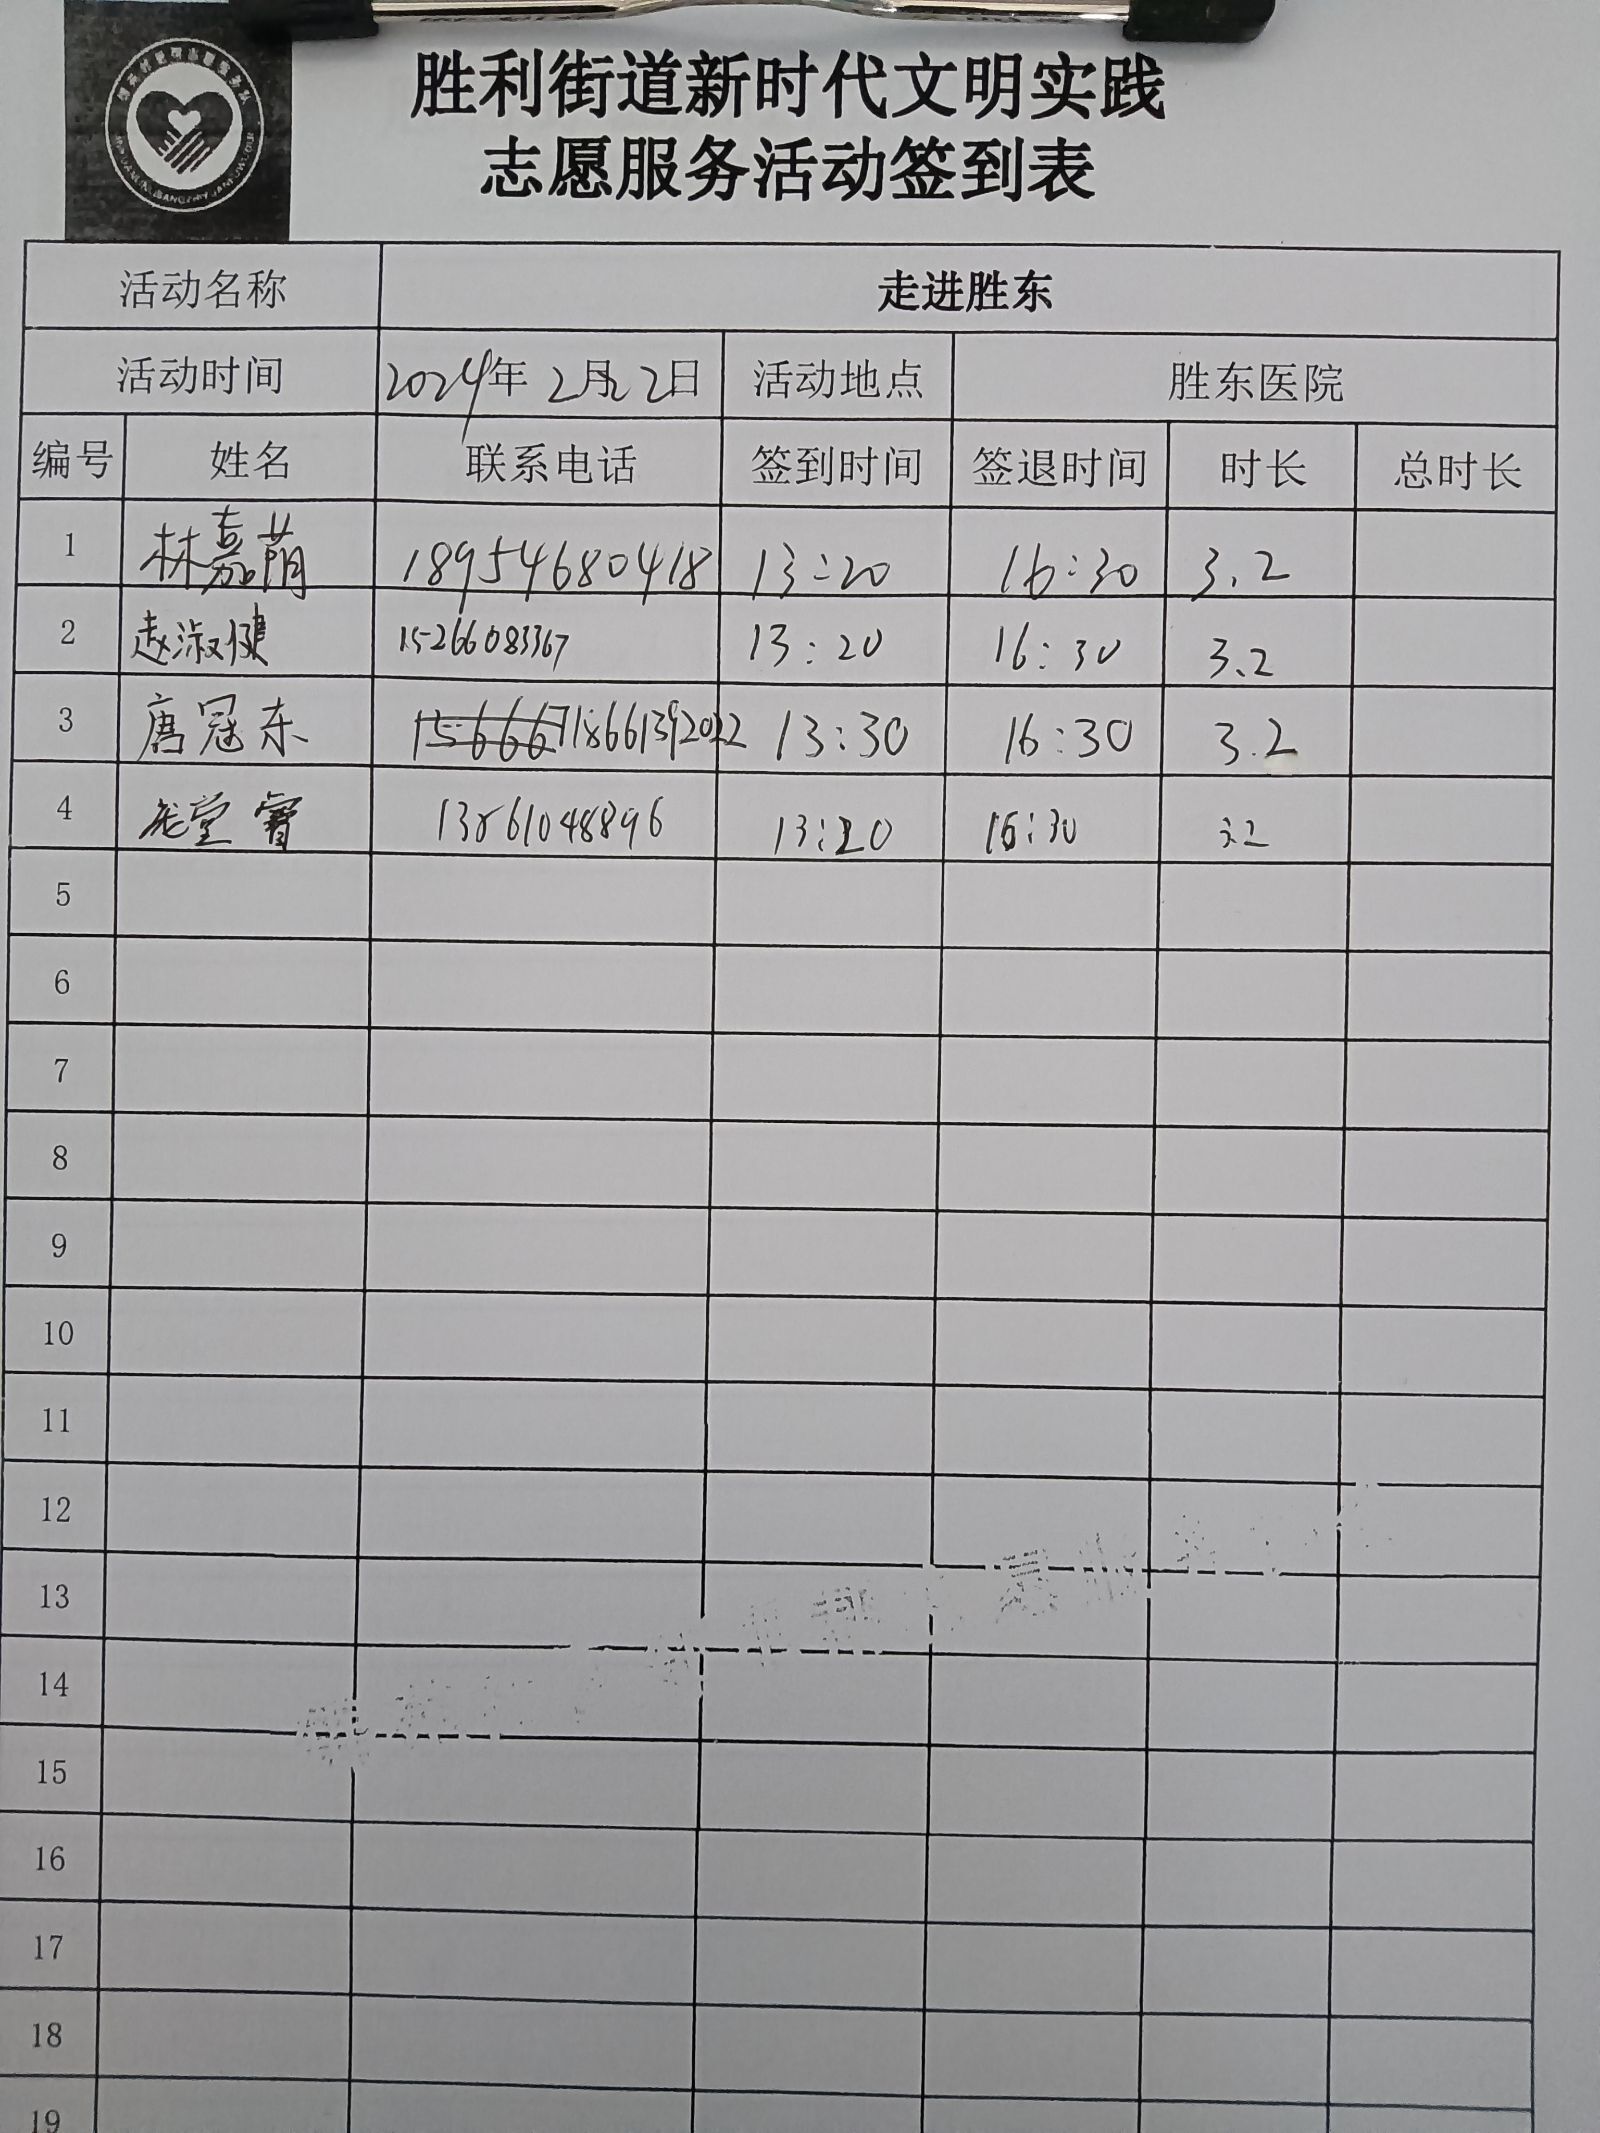 胜利街道新时代文明实践
志愿服务活动签到表
活动名称 走进胜东
活动时间 2024年 2月22日 活动地点 胜东医院
编号 姓名 联系电话 签到时间 签退时间 时长 总时长
1 林嘉萌 18954680418 13:20 16:30 3.2
2 赵淑健 15266083367 13:20 16:30 3.2
3 唐冠东 18661392022 13:30 16:30 3.2
4 庞堂睿 13861048896 13:20 16:30 3.2
5
6
7
8
9
10
11
12
13
14
15
16
17
18
19